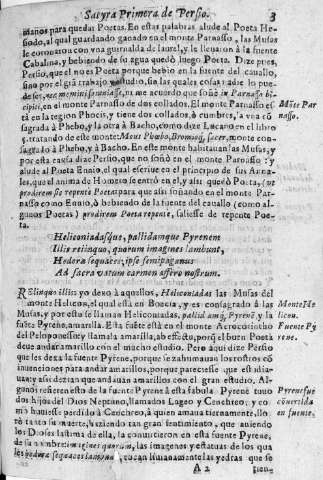 Satyra Primera de Persio. 3
manos para quedar Poetas. En estas palabras alude al Poeta He-
siodo, al qual guardando ganado en el monte Parnasso, las Musas
le coronaron con vna guirnalda de laurel, y le lleuaron à la fuente
Cabalina, y bebiendo de su agua quedò luego Poeta. Dize pues
Persio, que el no es Poeta porque bebio en la fuente del cauallo,
sino por el grā trabajo y estudio, sin las quales cosas nadie lo pue-
de ser, nec memini somniasse, ni me acuerdo que soñè in Parnasso bi-
cipiti, en el monte Parnasso de dos collados. El monte Parnasso es
tà en la region Phocis, y tiene dos collados, ò cumbres, la vna cō
sagrada à Phebo, y la otra à Bacho, como dize Lucano en el libro
5. tratando de este monte Mons Phœbo, Bromioq; sacer, monte con-
sagrado à Phebo, y à Bacho. En este monte habitauan las Musas, y
por esta causa dize Persio, que no soñò en el monte Parnaso: y
alude al Poeta Ennio, el qual escriue en el principio de sus Anna-
les, que el anima de Homero se entrò en el, y assi quedò Poeta, vt
prodirem sic repente Poeta para que assi soñando en el monte Par-
nasso como Ennio, ò bebiendo de la fuente del cauallo (como al-
gunos Poetas) prodirem Poeta repente, saliesse de repente Poe-
ta.
Mōte Par
nasso.
Heliconiadasque, pallidamque Pyrenem
Illis relinquo, quorum imagines lambunt,
Hederæ sequaces: ipse semipaganus
Ad sacra vatum carmen affero nostrum.
RElinquo illis yo dexo à aquellos, Heliconiadas las Musas del
monte Helicon, el qual està en Boecia, y es consagrado à las
Musas, y por esto se llaman Heliconiadas, pallidamq; Pyrenẽ, y la
fuẽte Pyrẽne, amarilla. Esta fuẽte està en el monte Acrocorintho
del Peloponesso: y llamala amarilla, ab effectu, porq̄ el buen Poeta
deue andar amarillo con el mucho estudio. Pero aqui dize Persio
que les dexa la fuẽte Pyrẽne, porque se zahumauan los rostros cō
inuenciones para andar amarillos, porque pareciesse que estudia-
uan: y assi dezian que andauan amarillos con el gran estudio. Al-
gunos refieren esto de la fuente Pyrẽne à esta fabula. Pyrẽne tuuo
dos hijos del Dios Neptuno, llamados Lageo y Cenchreo, y co-
mo huuiesse perdido à Cenchreo, à quien amaua tiernamente, llo-
rò tanto su muerte, haziendo tan gran sentimiento, que auiendo
los Dioses lastima de ella, la conuirtieron en esta fuente Pyrẽne,
de su nombre: imagines quorum, las imagenes y estatuas de los qua
les hederæ sequaces lambunt, tocan liuianamente las yedras que se
Monte He
licon.
Fuente Py
rene.
Pyrene fue
cōuertida
en fuente.
A 2